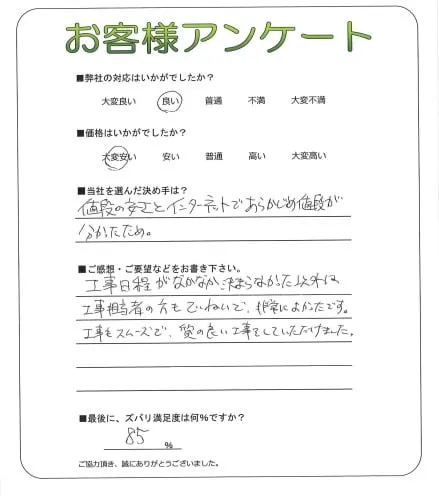 お客様アンケート
■弊社の対応はいかがでしたか?
大変良い 良い 普通 不満 大変不満
■価格はいかがでしたか?
大変安い 安い 普通 高い 大変高い
■当社を選んだ決め手は?
値段の安さとインターネットであらかじめ値段が
分かたため。
■ご感想・ご要望などをお書き下さい。
工事日程がなかなか決まらなかた以外は
工事担当者の方もていねいで、非常によかたです。
工事もスムーズで、質の良い工事をしていただけました。
■最後に、ズバリ満足度は何%ですか?
85 %
ご協力頂き、誠にありがとうございました。